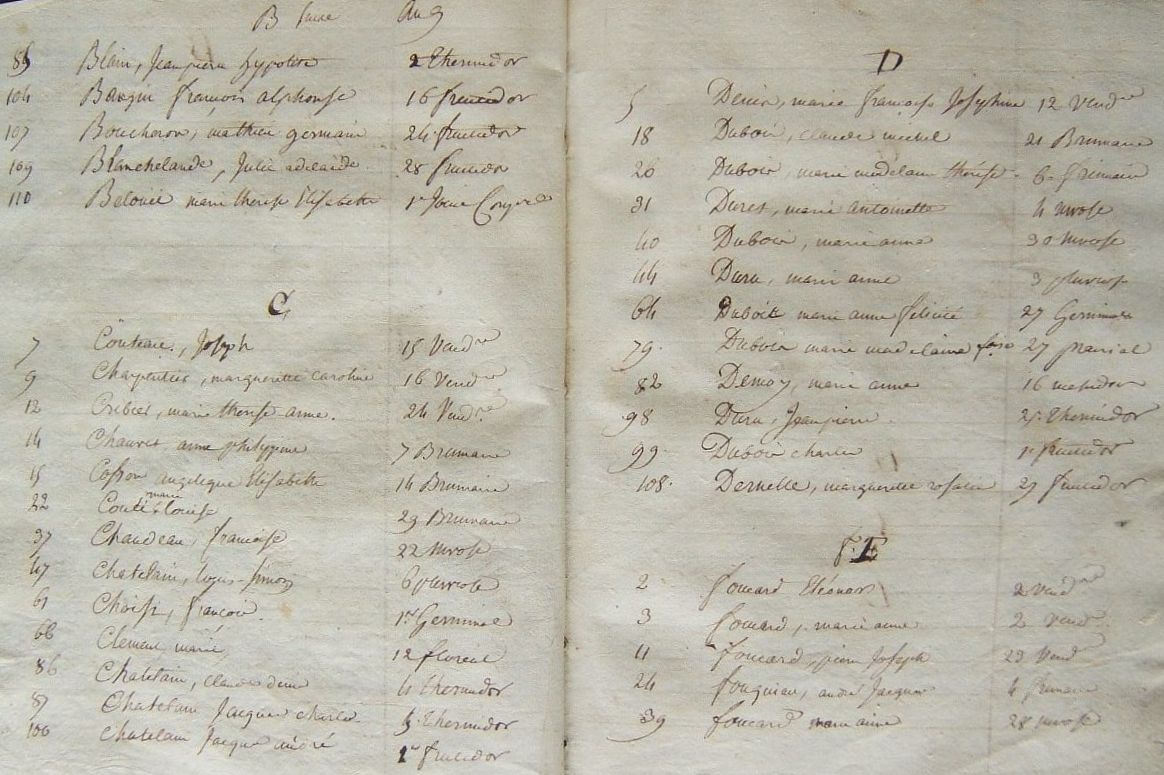 B
85 Blain, Jean pierre hypolite 2 Thermidor
104 Baugin francois alphonse 16 fructidor
107 Boucheron, mathieu germain 24 fructidor
109 Blanchelande, Julie adelaide 28 fructidor
110 marie therese Elisabette 1er Jour
C
7 Couteau, Joseph 15 Vendre
9 Charpentier, margueritte caroline 16 Vendre
12 Cribier, marie therese anne. 24 Vendre
14 Chauvet anne philippine 7 Brumaire
15 Cosson angelique Elisabette 14 Brumaire
22 Conté marie Louise 29 Brumaire
37 Chaudeau, francoise 22 nivose
47 Chatelain, Louis-simon 6 pluviose
61 francois 1er Germinal
66 Clement, marie, 12 floreal
86 Chatelain, claude denis 4 thermidor
87 Chatelain Jacque charles 5 Thermidor
100 Chatelain Jacque andré 1er fructidor
D
5 marie françoise Josephine 12 Vendre
18 Dubois, claude michel 21 Brumaire
26 Dubois, marie madelaine thérése 6 frimaire
31 Duret, marie Antoinette 4 nivose
40 Dubois, marie anne 30 nivose
44 Duru, marie anne 3 pluviose
64 Dubois marie anne félicité 27 Germinal
79 Dubois marie madelaine 27 prairial
82 Demoy, marie anne 16 messidor
98 Duru, Jean pierre 25 Thermidor
99 Dubois charles 1er fructidor
108 Dernelle, margueritte rosalie 27 fructidor
F
2 foucard Eléonor 2 Vendre
3 foucard, marie anne 2 Vendre
11 foucard, pierre Joseph 23 Vendre
24 andré Jacque 4 frimaire
39 foucard marie anne 28 nivose